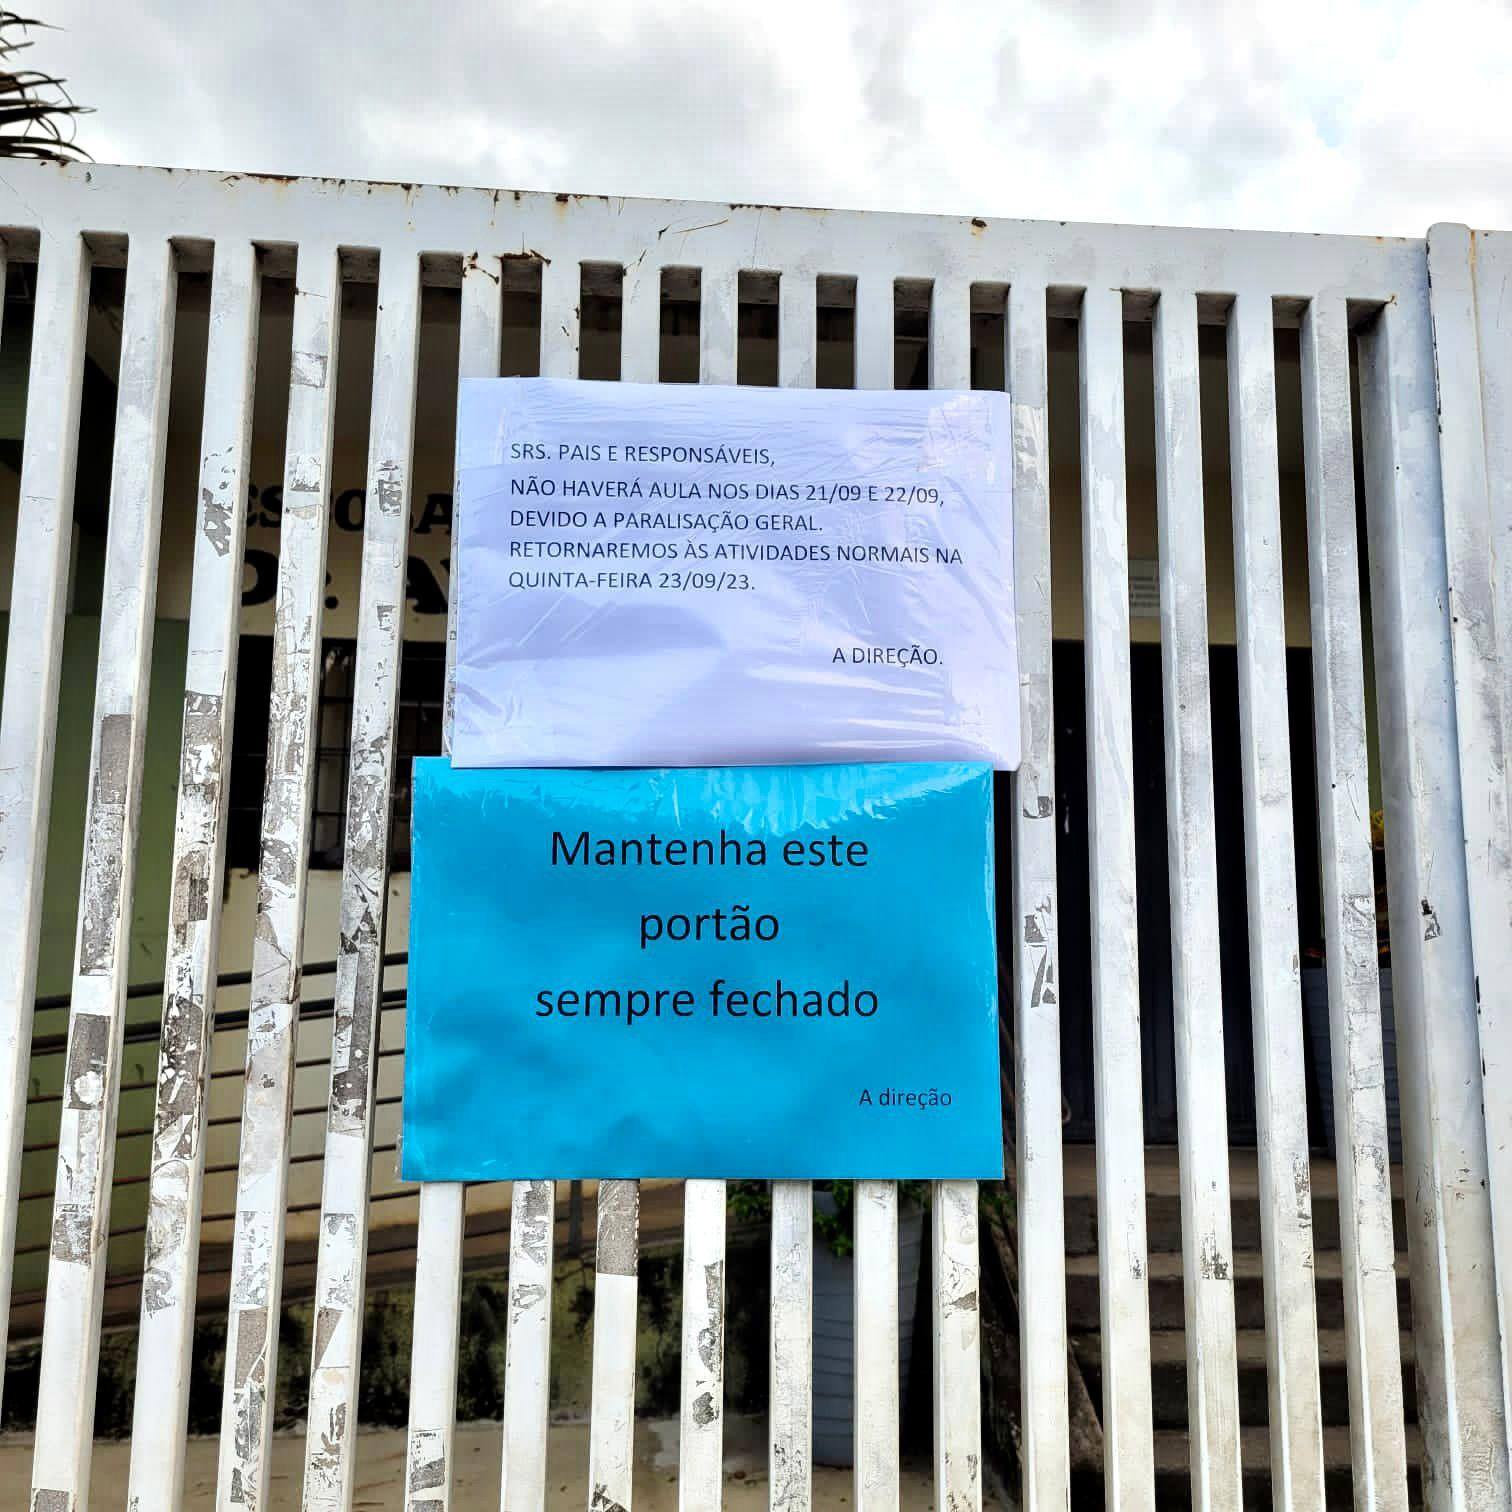 SRS. PAIS E RESPONSÁVEIS,
NÃO HAVERÁ AULA NOS DIAS 21/09 E 22/09,
DEVIDO A PARALISAÇÃO GERAL.
RETORNAREMOS ÀS ATIVIDADES NORMAIS NA
QUINTA-FEIRA 23/09/23.
A DIREÇÃO.
Mantenha este
portão
sempre fechado
A direção